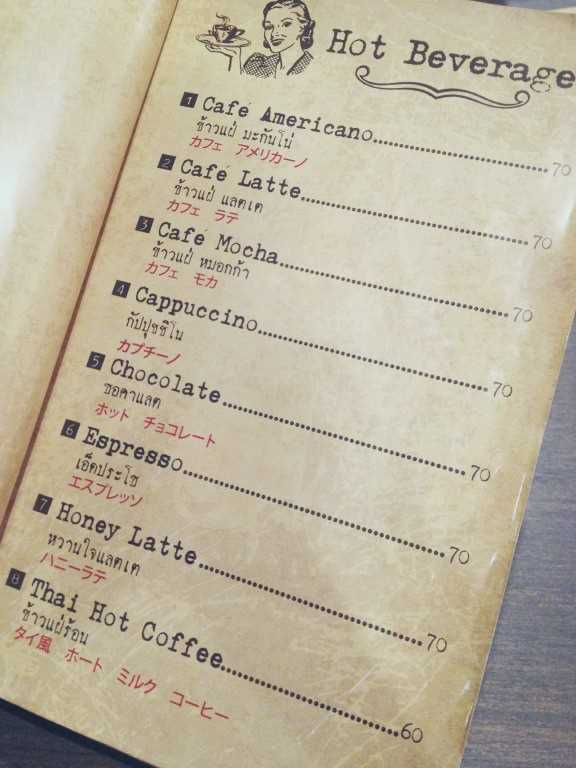 Hot Beverage
1 Café Americano 70
ข้าวแฝ่ มะกันโน่
カフェ アメリカーノ
2 Café Latte 70
ข้าวแฝ่ แลตเต
カフェ ラテ
3 Café Mocha 70
ข้าวแฝ่ หมอกก้า
カフェ モカ
4 Cappuccino 70
กัปปุชชิโน
カプチーノ
5 Chocolate 70
ชอคาแลต
ホット チョコレート
6 Espresso 70
เอ็คประโซ
エスプレッソ
7 Honey Latte 70
หวานใจแลตเต
ハニーラテ
8 Thai Hot Coffee 60
ข้าวแฝ่ร้อน
タイ風 ホート ミルク コーヒー